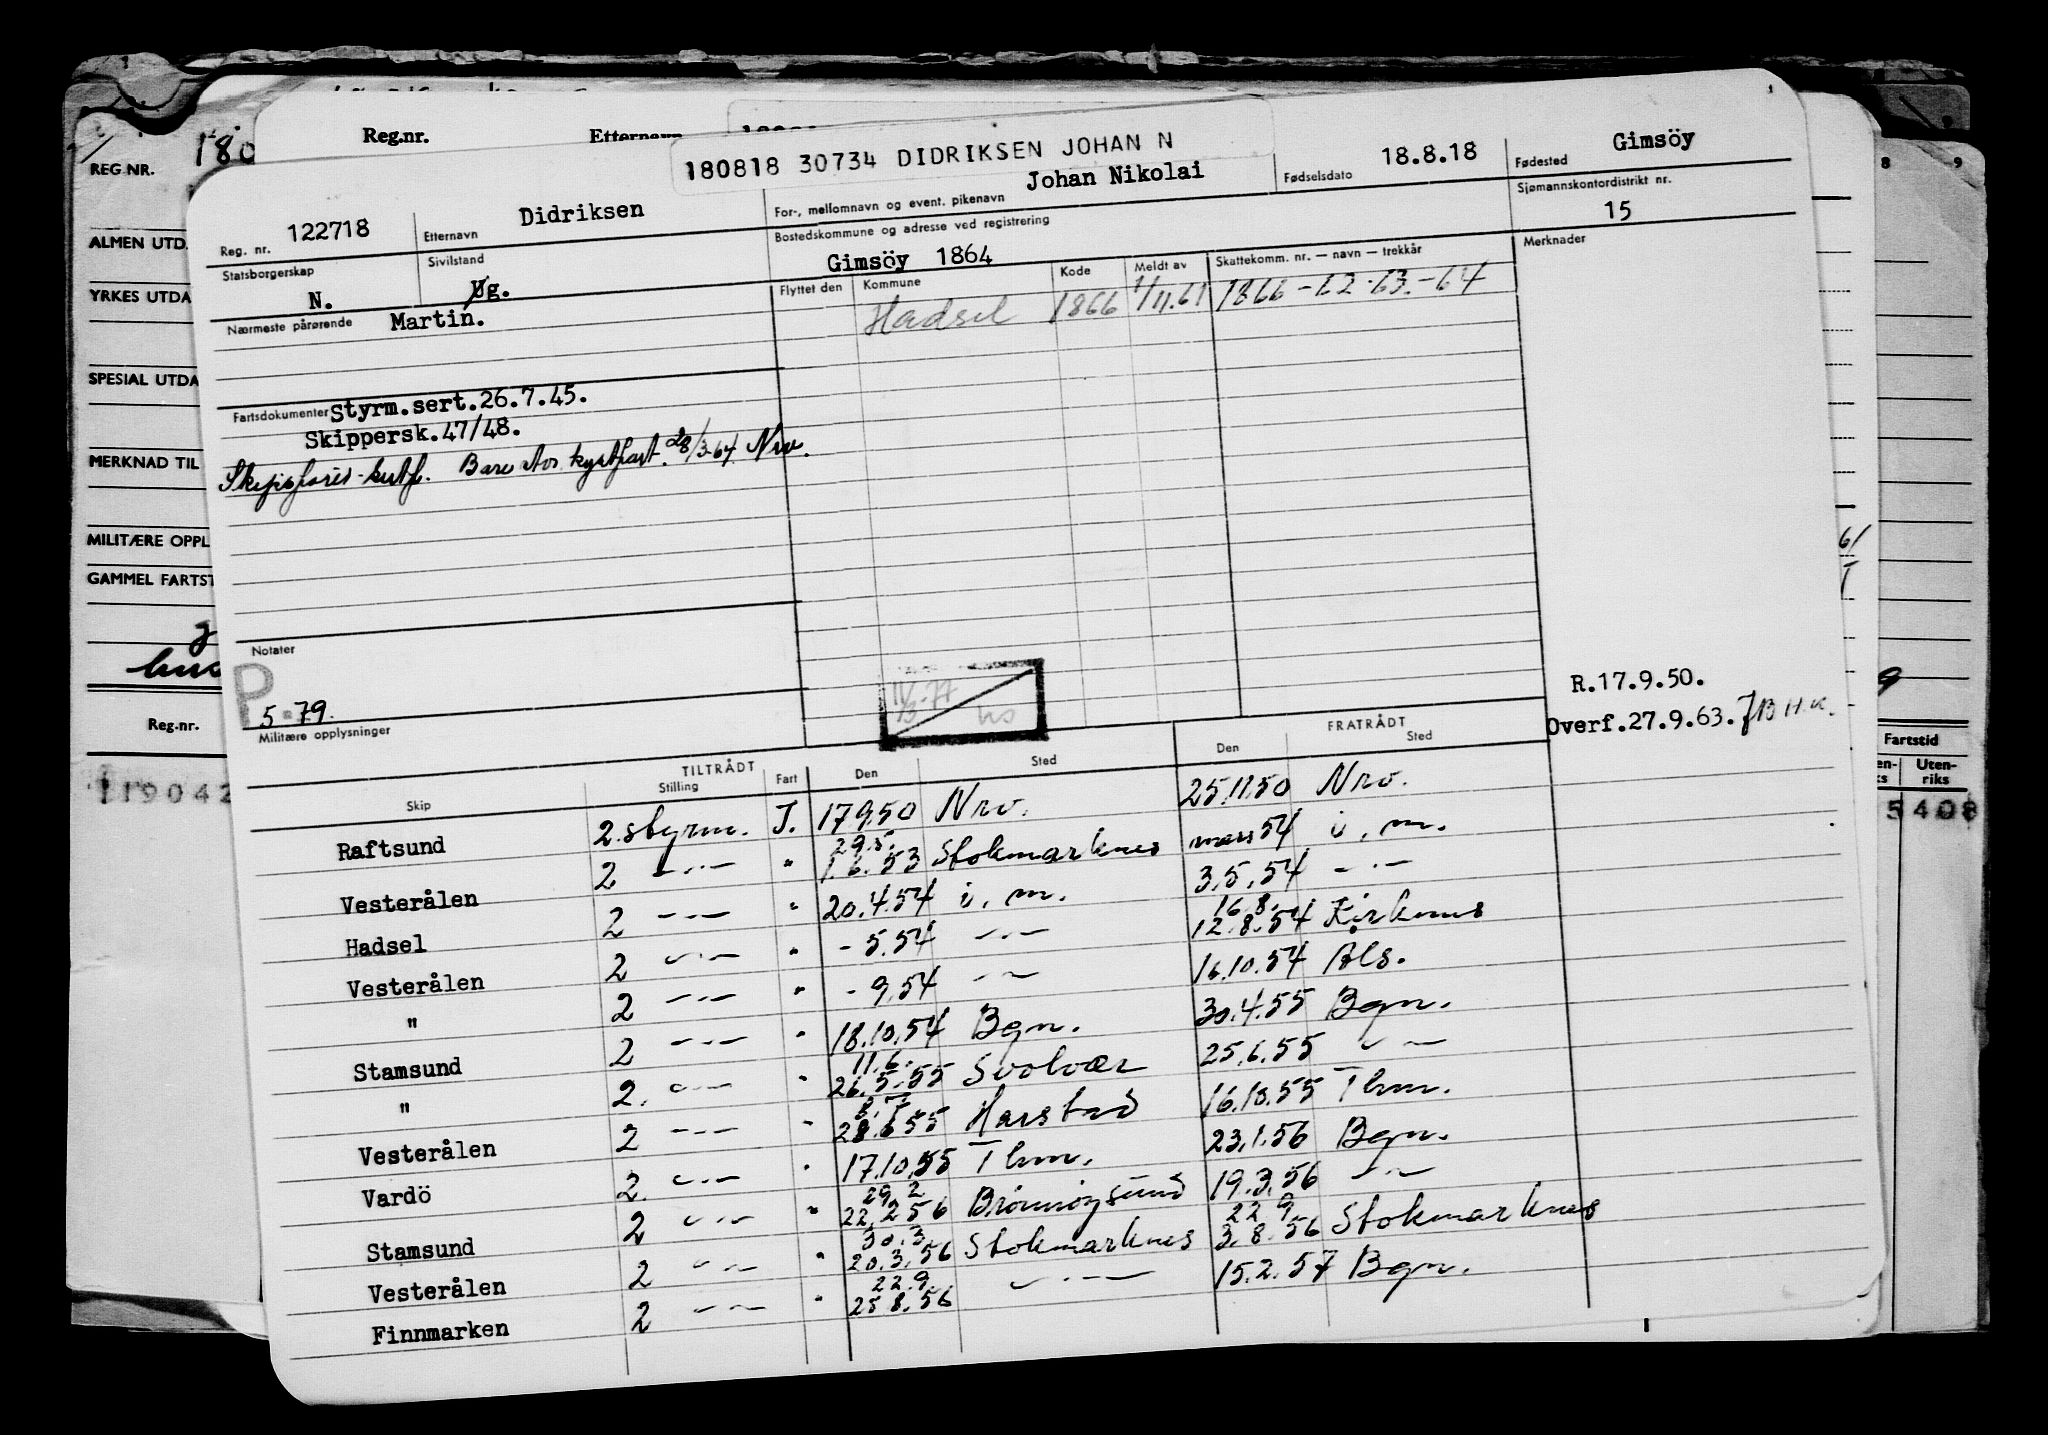 180
REG.NR.
ALMEN UTDA
YRKES UTDA
SPESIAL UTDA
MERKNAD TIL
MILITÆRE OPPL
GAMMEL FARTST
Reg.nr.
119042
Reg.nr. Etternavn
180818 30734 DIDRIKSEN JOHAN N
122718 Didriksen Johan Nikolai 18.8.18 Gimsöy
Reg. nr. Etternavn For-, mellomnavn og event. pikenavn Fødselsdato Fødested
Statsborgerskap Sivilstand Bostedskommune og adresse ved registrering Sjømannskontordistrikt nr.
N. Ug. Gimsöy 1864 15
Nærmeste pårørende Martin.
Flyttet den Kommune Kode Meldt av Skattekomm. nr. — navn — trekkår Merknader
Hadsel 1866 1/11.61 1866-62-63.-64
Fartsdokumenter Styrm.sert.26.7.45.
Skippersk.47/48.
Bare kystfart. 28/3-64 Nrv.
Notater
P
5-79.
Militære opplysninger
R.17.9.50.
Overf.27.9.63.
TILTRÅDT FRATRÅDT
Skip Stilling Fart Den Sted Den Sted
Raftsund 2.styrm. I. 17.9.50 Nrv. 25.11.50 Nrv.
Vesterålen 2 —·— " 29.5. 1.6.53 Stokmarknes mars 54 i. m.
Hadsel 2 —·— " 20.4.54 i. m. 3.5.54 —·—
Vesterålen 2 —·— " - 5.54 —·— 16.8. 12.8.54 Kirkenes
" 2 —·— " - 9.54 —·— 16.10.54 Als.
Stamsund 2 —·— " 18.10.54 Bgn. 30.4.55 Bgn.
" 2. —·— " 11.6. 26.5.55 Svolvær 25.6.55 —·—
Vesterålen 2 —·— " 28.6.55 Harstad 16.10.55 Thm.
Vardö 2. —·— " 17.10.55 Thm. 23.1.56 Bgn.
Stamsund 2 —·— " 29.2 22.2.56 Brønnøysund 19.3.56 —·—
Vesterålen 2 —·— " 30.3. 20.3.56 Stokmarknes 22.9 3.8.56 Stokmarknes
Finnmarken 2 —·— " 22.9. 25.8.56 —·— 15.2.57 Bgn.
8 9
Fartstid
Uten-
riks
5408